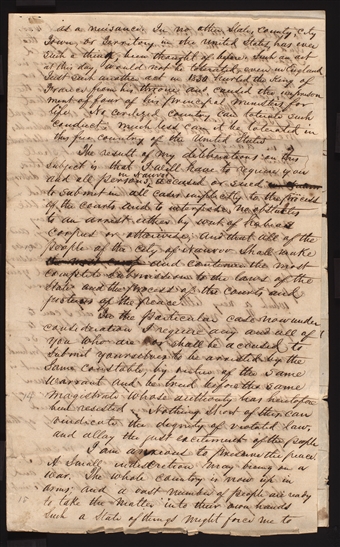 as a nuisance. In no other State, County, City
Town, or Territory in the United States has ever
such a thing been thought of before. Such an act
at this day would not be tolerated even in England.
Just such another act in 1830 hurled the King of
France from his throne, and caused the imprison
ment of four of his principal ministers for
life. No civilized country can tolerate such
conduct, much less can it be tolerated in
this free country of the United States.
The result of my deliberations on this
subject is that I will have to require you
and all persons in Nauvoo accused or sued
to submit in all cases implicitly to the process
of the courts and to interpose no obstacles
to an arrest either by writ of habeas
corpus or otherwise; and that all of the
people of the city of Nauvoo shall make
and continue the most
complete submission to the laws of the
State and the process of the courts and
justices of the peace.
In the particular case now under
consideration I require any and all of
you who are or shall be accused to
submit yourselves to be arrested by the
same constable, by virtue of the same
warrant and be tried before the same
magistrate whose authority has heretofore
been resisted. Nothing short of this can
vindicate the dignity of violated law,
and allay the just excitement of the people.
I am anxious to preserve the peace.
A small indiscretion may bring on a
war. The whole country is now up in
arms; and a vast number of people are ready
to take the matter into their own hands
Such a State of things might force me to